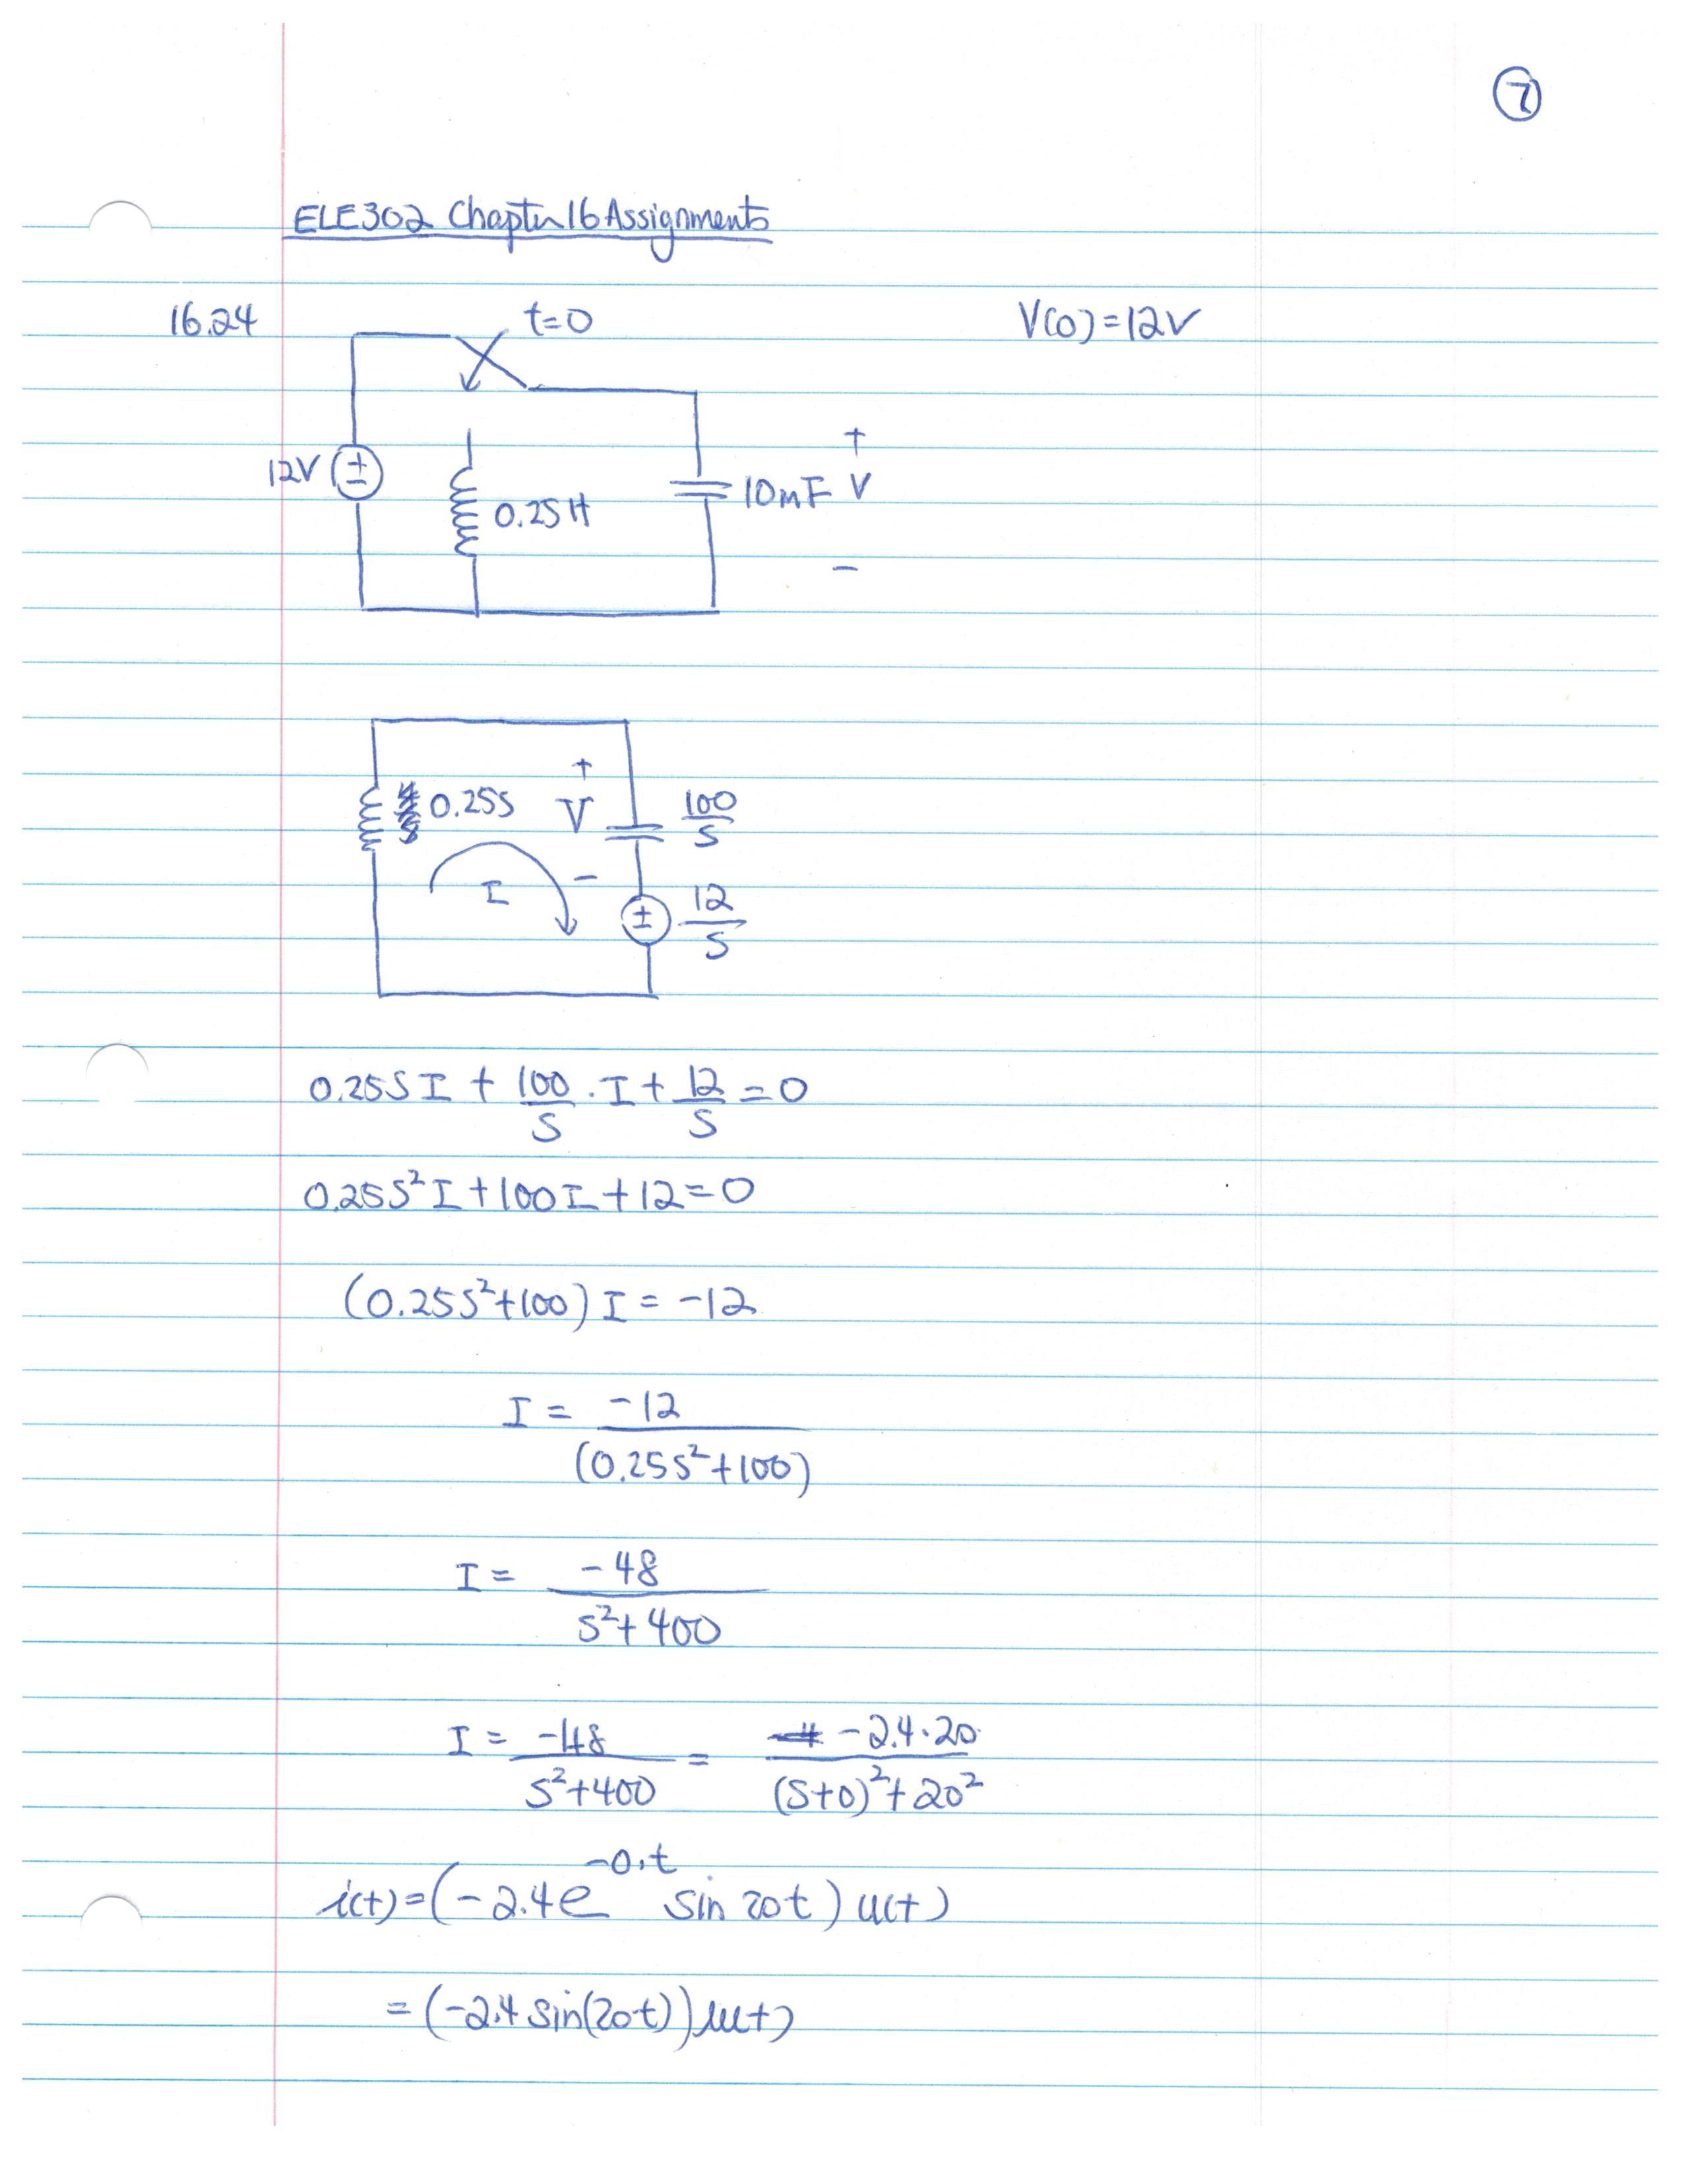 7
ELE302 Chapter 16 Assignments
16.24
t=0
V(0)=12V
12V
±
0.25H
10mF
+
V
−
0.25S
+
V
−
100/S
I
±
12/S
0.25SI + 100/S · I + 12/S = 0
0.25S²I + 100I + 12 = 0
(0.25S²+100) I = -12
I = -12/(0.25S²+100)
I = -48/S²+400
I = -48/S²+400 = -2.4·20/(S+0)²+20²
i(t) = (-2.4e^-0.t sin 20t) u(t)
= (-2.4 sin(20t)) u(t)